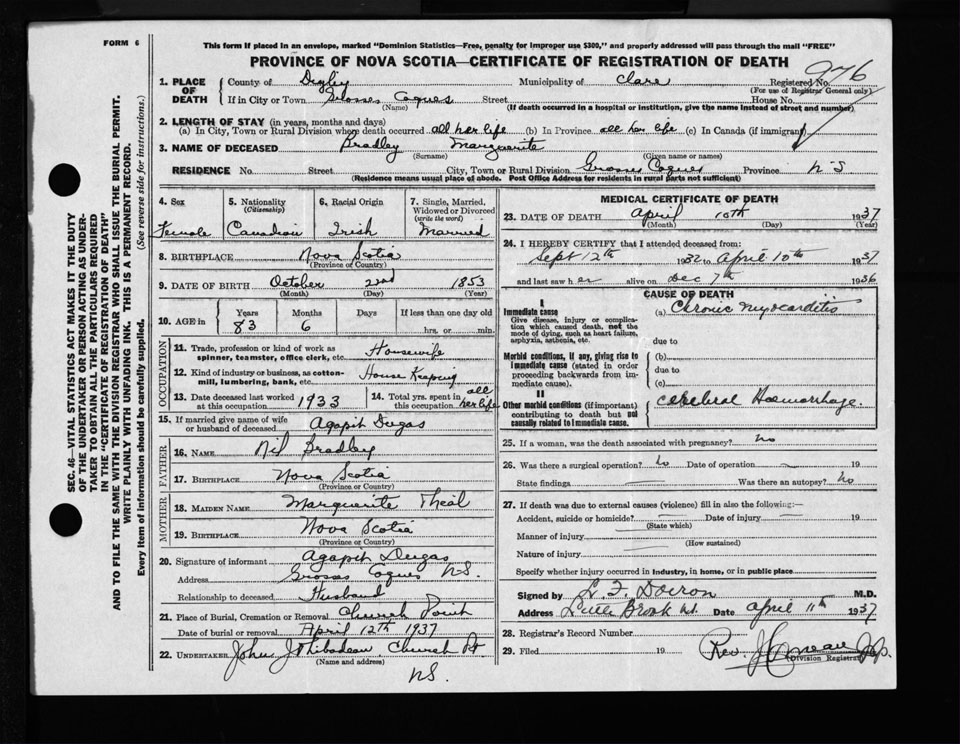 FORM 6
This form if placed in an envelope, marked "Dominion Statistics—Free, penalty for improper use $300," and properly addressed will pass through the mail "FREE"
PROVINCE OF NOVA SCOTIA—CERTIFICATE OF REGISTRATION OF DEATH
976
1. PLACE OF DEATH County of Digby Municipality of Clare Registered No.
(For use of Registrar General only)
If in City or Town Grosses Coques Street House No.
(Name) (If death occurred in a hospital or institution, give the name instead of street and number)
2. LENGTH OF STAY (in years, months and days)
(a) In City, Town or Rural Division where death occurred all her life (b) In Province all her life (c) In Canada (if immigrant)
3. NAME OF DECEASED Bradley Marguerite
(Surname) (Given name or names)
RESIDENCE No. Street City, Town or Rural Division Grosses Coques Province N S
(Residence means usual place of abode. Post Office Address for residents in rural parts not sufficient)
SEC. 46—VITAL STATISTICS ACT MAKES IT THE DUTY
OF THE UNDERTAKER OR PERSON ACTING AS UNDER-
TAKER TO OBTAIN ALL THE PARTICULARS REQUIRED
IN THE "CERTIFICATE OF REGISTRATION OF DEATH"
AND TO FILE THE SAME WITH THE DIVISION REGISTRAR WHO SHALL ISSUE THE BURIAL PERMIT.
WRITE PLAINLY WITH UNFADING INK. THIS IS A PERMANENT RECORD.
Every item of information should be carefully supplied. (See reverse side for instructions.)
4. Sex 5. Nationality (Citizenship) 6. Racial Origin 7. Single, Married, Widowed or Divorced (write the word)
Female Canadian Irish Married
8. BIRTHPLACE Nova Scotia
(Province or Country)
9. DATE OF BIRTH October 2nd 1853
(Month) (Day) (Year)
10. AGE in Years Months Days If less than one day old
83 6 hrs. or min.
OCCUPATION
11. Trade, profession or kind of work as
spinner, teamster, office clerk, etc. Housewife
12. Kind of industry or business, as cotton-
mill, lumbering, bank, etc. House Keeping
13. Date deceased last worked
at this occupation 1933
14. Total yrs. spent in
this occupation all her life
15. If married give name of wife
or husband of deceased Agapit Dugas
FATHER
16. NAME Nil Bradley
17. BIRTHPLACE Nova Scotia
(Province or Country)
MOTHER
18. MAIDEN NAME Marguerite
19. BIRTHPLACE Nova Scotia
(Province or Country)
20. Signature of informant Agapit Dugas
Address Grosses Coques N.S.
Relationship to deceased Husband
21. Place of Burial, Cremation or Removal Church Point
Date of burial or removal April 12th 1937
22. UNDERTAKER John J Thibodeau Church Pt
(Name and address)
N.S.
MEDICAL CERTIFICATE OF DEATH
23. DATE OF DEATH April 10th 1937
(Month) (Day) (Year)
24. I HEREBY CERTIFY that I attended deceased from:
Sept 12th 1932 to April 10th 1937
and last saw her alive on Dec 7th 1936
CAUSE OF DEATH
I
Immediate cause
Give disease, injury or complica-
tion which caused death, not the
mode of dying, such as heart failure,
asphyxia, asthenia, etc.
(a) Chronic myocarditis
due to
Morbid conditions, if any, giving rise to
immediate cause (stated in order
proceeding backwards from im-
mediate cause).
(b)
due to
(c)
II
Other morbid conditions (if important)
contributing to death but not
causally related to immediate cause.
Cerebral Haemorrhage.
25. If a woman, was the death associated with pregnancy? No
26. Was there a surgical operation? No Date of operation 19
State findings Was there an autopsy? No
27. If death was due to external causes (violence) fill in also the following:—
Accident, suicide or homicide? Date of injury 19
(State which)
Manner of injury
(How sustained)
Nature of injury
Specify whether injury occurred in industry, in home, or in public place
Signed by L. F. Doiron M.D.
Address Little Brook N.S. Date April 11th 1937
28. Registrar's Record Number
29. Filed 19 Rev. J. Comeau
(Division Registrar)